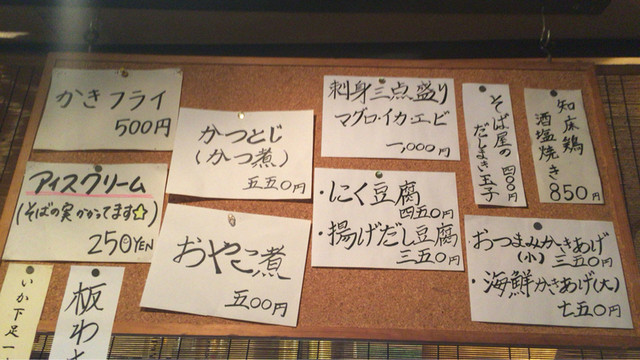 かきフライ
500円
アイスクリーム
(そばの実がかってます☆)
250YEN
いか下足一
板わ
かつとじ
(かつ煮)
五五〇円
おやこ煮
五〇〇円
刺身三点盛り
マグロ・イカ・エビ
一,〇〇〇円
・にく豆腐
四五〇円
・揚げだし豆腐
三五〇円
そば屋の
だしまき玉子
四〇〇円
知床鶏
酒塩焼き
850円
・おつまみかきあげ
(小) 三五〇円
・海鮮かきあげ(大)
七五〇円